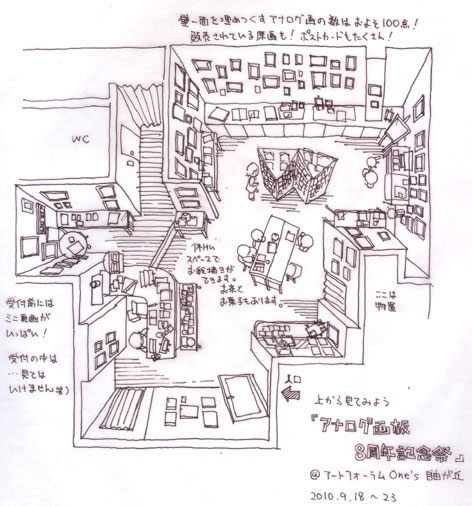 壁一面を埋めつくすアナログ画の数はおよそ100点!
販売されている原画も! ポストカードもたくさん!
WC
休けい
スペースで
お絵描きが
できます。
お茶と
お菓子もあります。
受付前には
ミニ原画が
いっぱい!
受付の中は
…見ては
いけません(笑)
ここは
物置
入口
上から見てみよう
『アナログ画板
8周年記念祭』
@アートフォーラムOne's 自由が丘
2010.9.18 ~ 23